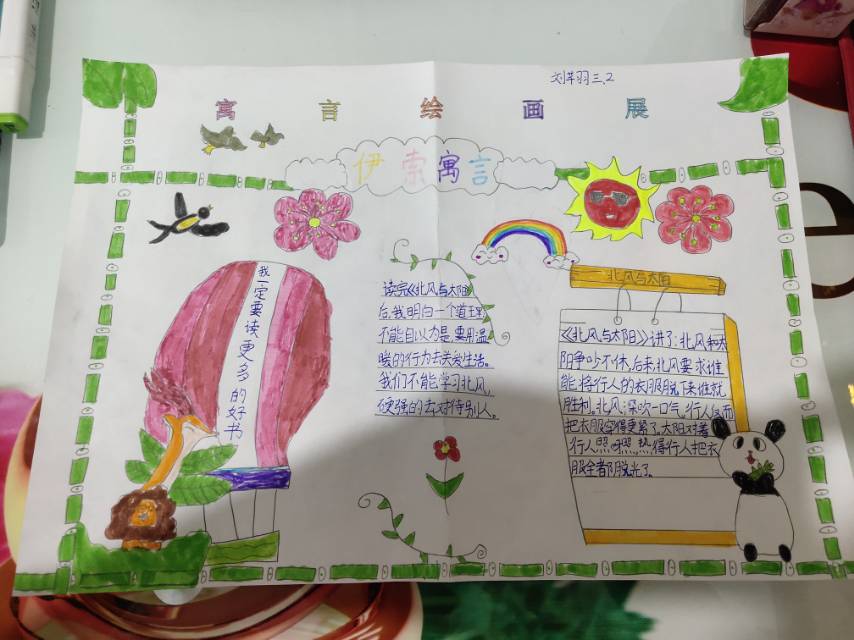 刘羽三.2
寓言绘画展
伊索寓言
我一定要读更多的好书
读完《北风与太阳》
后,我明白一个道理:
不能自以力是,要用温
暖的行力去关爱生活。
我们不能学习北风,
硬强的去对待别人。
北风与太阳
《北风与太阳》讲了:北风和太
阳争吵不休,后来,北风要求谁
能将行人的衣服脱下来谁就
胜利。北风深吹一口气,行人反而
把衣服裹得更紧了,太阳对着
行人照呀照,热得行人把衣
服全都脱光了。